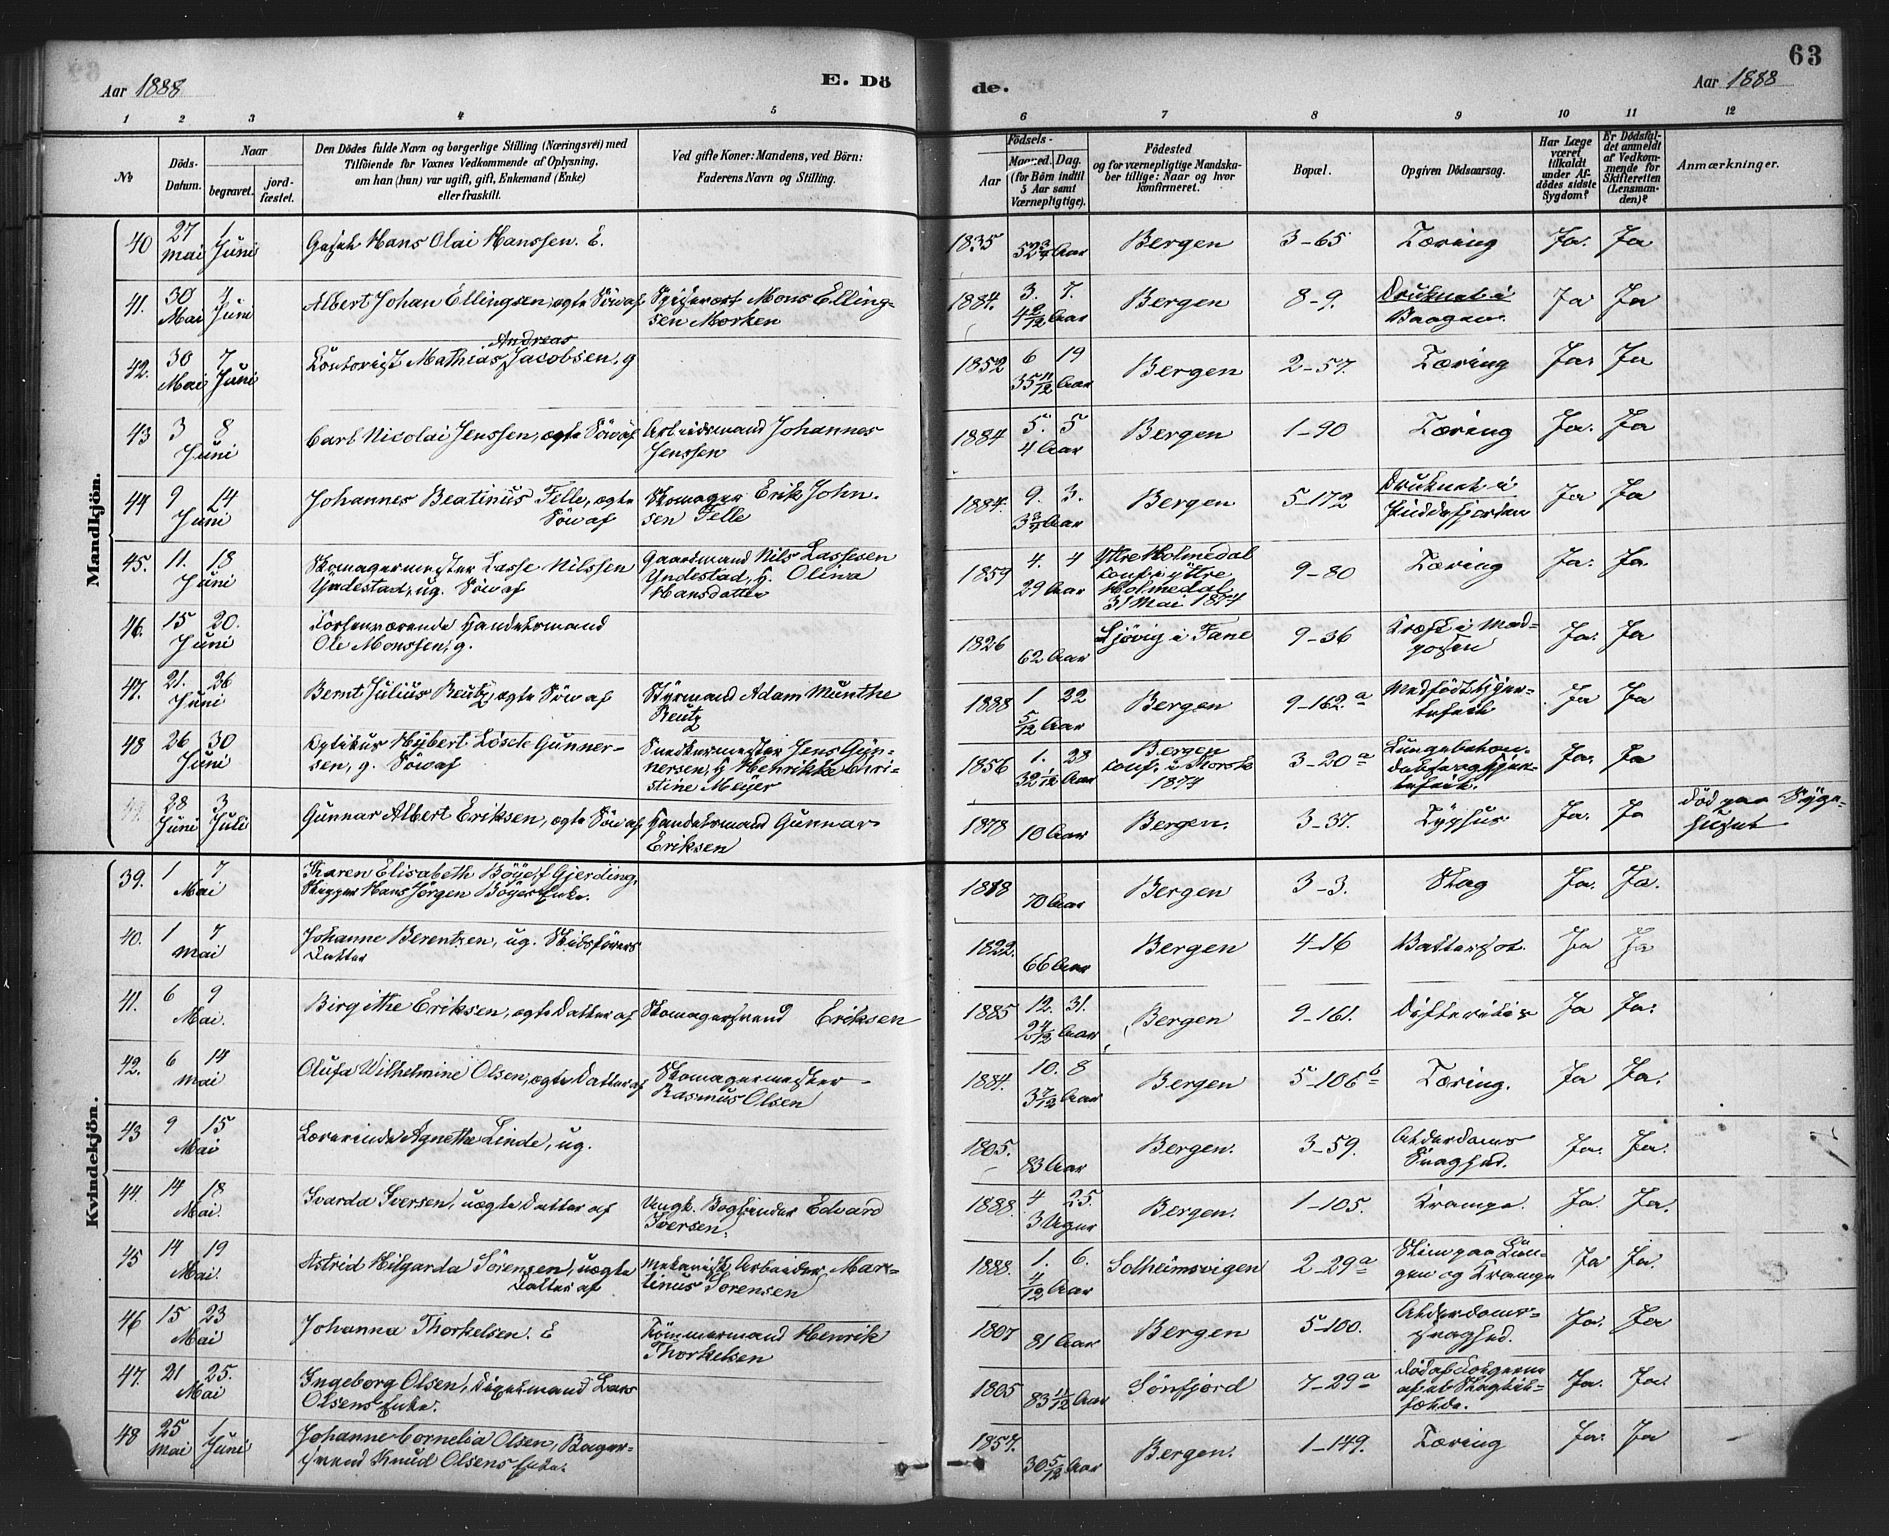 63
Aar 1888
E. Dö
de.
Aar 1888
1 2 3 4 5 6 7 8 9 10 11 12
No
Döds-
Datum.
Naar
begravet.
jord-
fæstet.
Den Dödes fulde Navn og borgerlige Stilling (Næringsvei) med
Tilföiende for Voxnes Vedkommende af Oplysning,
om han (hun) var ugift, gift, Enkemand (Enke)
eller fraskilt.
Ved gifte Koner: Mandens, ved Börn:
Faderens Navn og Stilling.
Födsels-
Aar
Maaned. Dag.
(for Börn indtil
5 Aar samt
Værnepligtige).
Födested
og for værnepligtige Mandska-
ber tillige: Naar og hvor
konfirmeret.
Bopæl.
Opgiven Dödsaarsag.
Har Læge
været
tilkaldt
under Af-
dödes sidste
Sygdom?
Er Dödsfal-
det anmeldt
af Vedkom-
mende for
Skifteretten
(Lensman-
den)?
Anmærkninger.
Mandkjön.
40 27 Mai 1 Juni Hans Olai Hanssen. E. 1835 52 3/4 Aar Bergen 3-65 Tæring Ja. Ja
41. 30 Mai 4 Juni Albert Johan Ellingsen, ægte Sön af Mons Elling-
sen Morken 1884. 3. 7. 4 2/12 Aar Bergen 8-9. Druknet i
Vaagen. Ja Ja
42. 30 Mai 7 Juni Kontorist Mathias Andreas Jacobsen, g 1852 6 19 35 11/12 Aar Bergen 2-57. Tæring Ja. Ja
43 3 8 Juni Carl Nicolai Jenssen, ægte Sön af Arbeidsmand Johannes
Jenssen 1884 5. 5 4 Aar Bergen 1-90 Tæring Ja. Ja
44 9 14 Juni Johannes Beatinus Felle, ægte
Sön af Skomager Erik John-
sen Felle 1884. 9. 3. 3 3/4 Aar Bergen 5-172 Druknet i
Puddefjorden Ja Ja
45. 11. 18 Juni Skomagermester Lasse Nilssen
Yndestad, ug. Sön af Gaardmand Nils Lassesen
Yndestad, g. Olina
Hansdatter 1859 4. 4 29 Aar Ytre Holmedal
conf. i ytre
Holmedal
31 Mai 1874 9-80 Tæring Ja. Ja
46. 15 20. Juni Forhenværende Handelsmand
Ole Monssen, g. 1826 62 Aar Sjövig i Fane 9-36 Kræft i Mad-
posen Ja. Ja
47. 21. 26 Juni Bernt Julius Reutz, ægte Sön af Styrmand Adam Munthe
Reutz 1888 1. 22 5/12 Aar Bergen 9-162 a Medfödt Hjer-
tefeil Ja Ja
48 26 30 Juni Optikus Hybert Losete Gunner-
sen, g. Sön af Snedkermester Jens Gun-
nersen, g Henrikke Chri-
stine Meyer 1856 1. 28 32 1/12 Aar Bergen
conf. i Korsk
1874 3-20 a Ja. Ja
49. 28 Juni 3 Juli Gunnar Albert Eriksen, ægte Sön af Handelsmand Gunnar
Eriksen 1878 10 Aar Bergen. 3-37. Typhus Ja. Ja Död paa Syge-
huset
Kvindekjön.
39. 1 7 Mai Karen Elisabeth Böye f Gjerding,
Skipper Hans Jörgen Böyes Enke. 1818 70 Aar Bergen 3-3. Slag Ja. Ja.
40. 1 7 Mai Johanne Berentzen, ug. Skibsförers
Datter 1822. 66 Aar Bergen 4-16 Vattersot. Ja Ja
41. 6 9 Mai. Birgithe Eriksen, ægte Datter af Skomagersvend Eriksen 1885 12. 31. 2 4/12 Aar Bergen 9-161. Difteritis Ja Ja.
42. 6 14 Mai Olufa Wilhelmine Olsen, ægte Datter af Skomagermester
Rasmus Olsen 1884. 10. 8 3 7/12 Aar Bergen 5-106 b Tæring. Ja Ja.
43 9 15 Mai Lærerinde Agnethe Linde, ug. 1805. 83 Aar Bergen. 3-59. Alderdoms
Svaghed. Ja. Ja.
44. 14 18 Mai. Svarda Iversen, uægte Datter af Ungk. Bogbinder Edvard
Iversen. 1888. 4 25. 3 Uger Bergen. 1-105. Krampe. Ja. Ja.
45 14 19 Mai. Astrid Hilgarda Sörensen, uægte
Datter af mekanisk Arbeider Mar-
tinus Sorensen 1888. 1. 6. 4/12 Aar Solheimsvigen 2-29 a Slim paa Lun-
gen og Krampe Ja Ja.
46 15 23 Mai Johanna Thorkelsen. E Tömmermand Henrik
Thorkelsen 1807 81 Aar Bergen 5-100. Alderdoms-
svaghed. Ja. Ja
47. 21 25. Mai Ingeborg Olsen, Lars
Olsens Enke. 1805 83 11/12 Aar Sönfjord 7-29 a Död af Fölgerne
af et Slagtil-
fælde. Ja. Ja.
48 25 Mai 1 Juni Johanne Cornelia Olsen, Bager-
svend Knud Olsens Enke. 1857. 30 5/12 Aar Bergen. 1-149. Tæring Ja. Ja